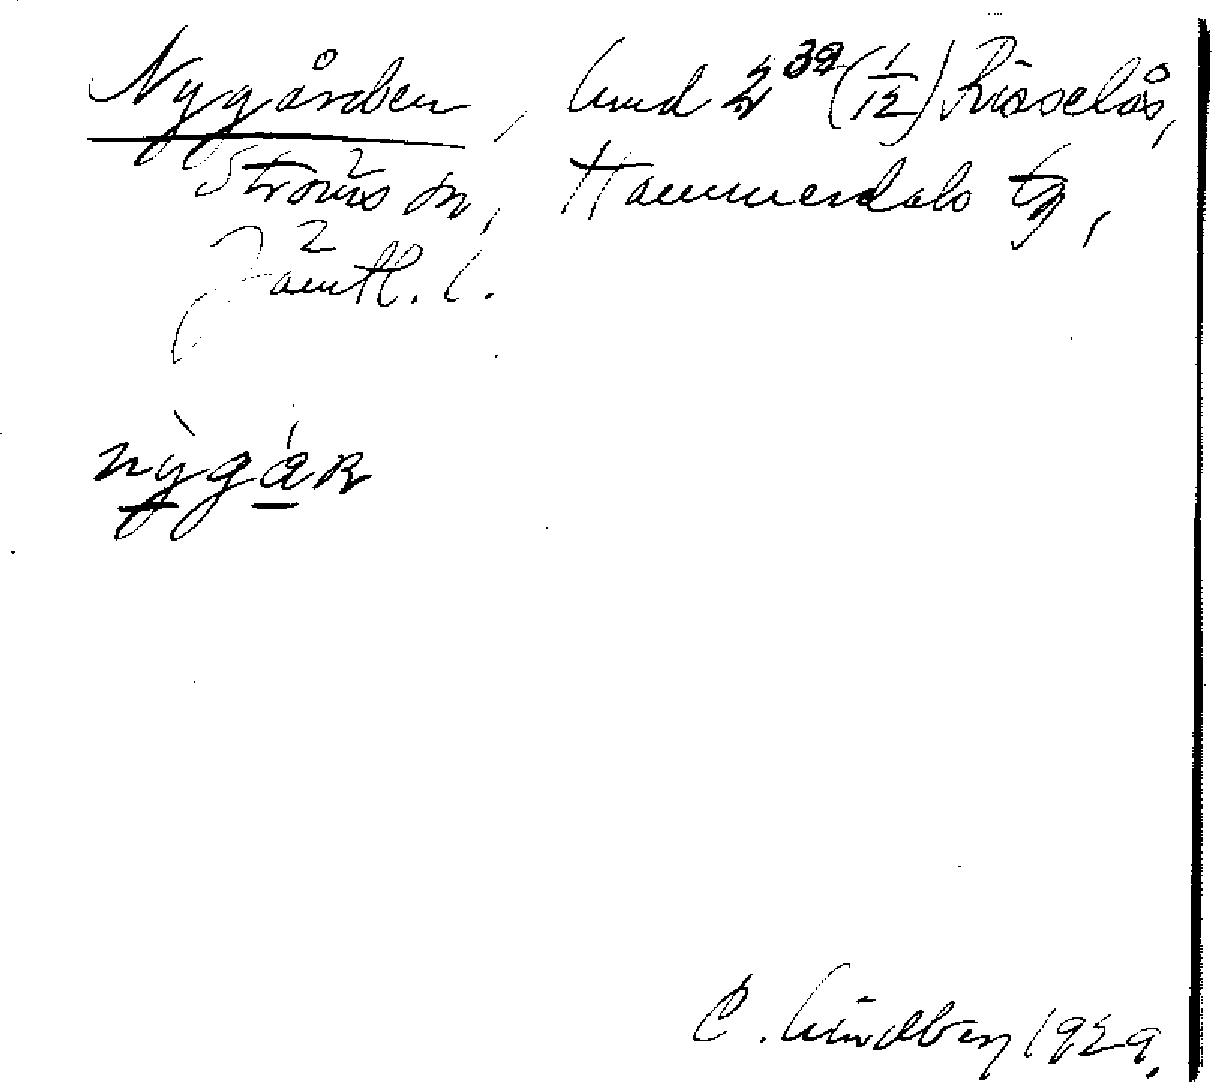 Nygården, und 2³² (1/12) Risselås,
Ströms sn, Hammerdals tg,
Jämtl. l.
nỳgáʀ
C. Lindberg 1929.